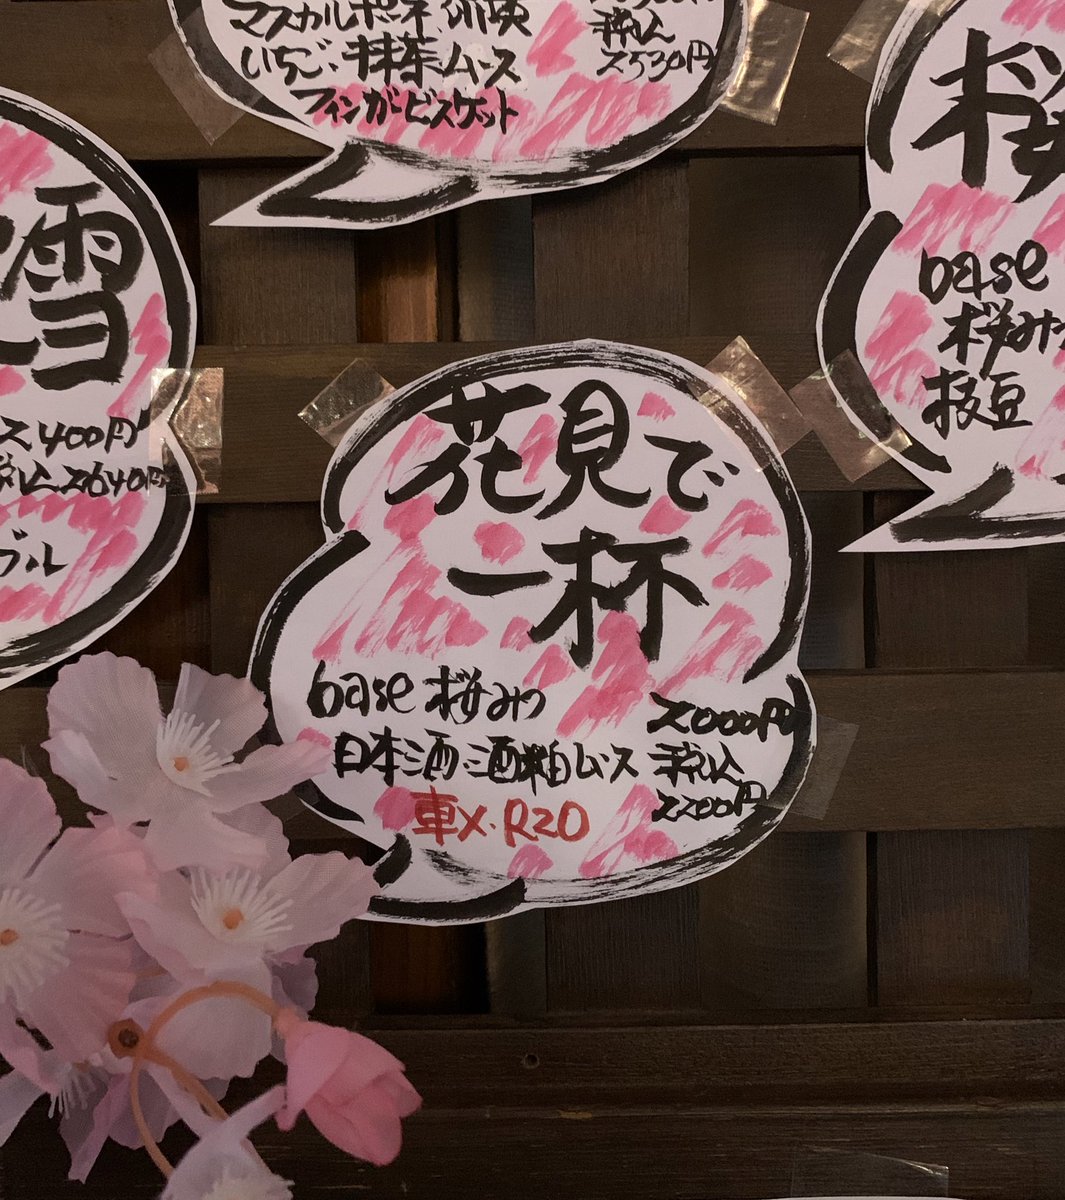 マスカルポーネ、
いちご、抹茶ムース
フィンガービスケット
税込
2530円
雪
2400円
税込2640円
ブル
桜
base
桜みつ
枝豆
花見で
一杯
base 桜みつ
日本酒、酒粕ムース
車×、R20
2000円
税込
2200円